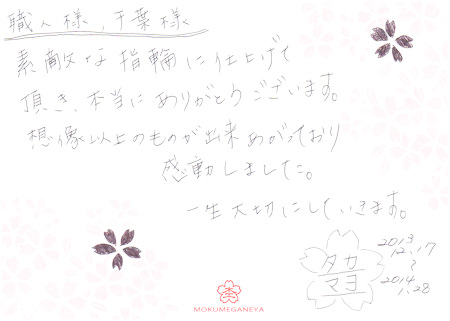 職人様、千葉様
素敵な指輪に仕上げて
頂き、本当にありがとうございます。
想像以上のものが出来あがっており
感動しました。
一生大切にしていきます。
2013
12.17
～
2014
1.28
タカ
マヨ
MOKUMEGANEYA